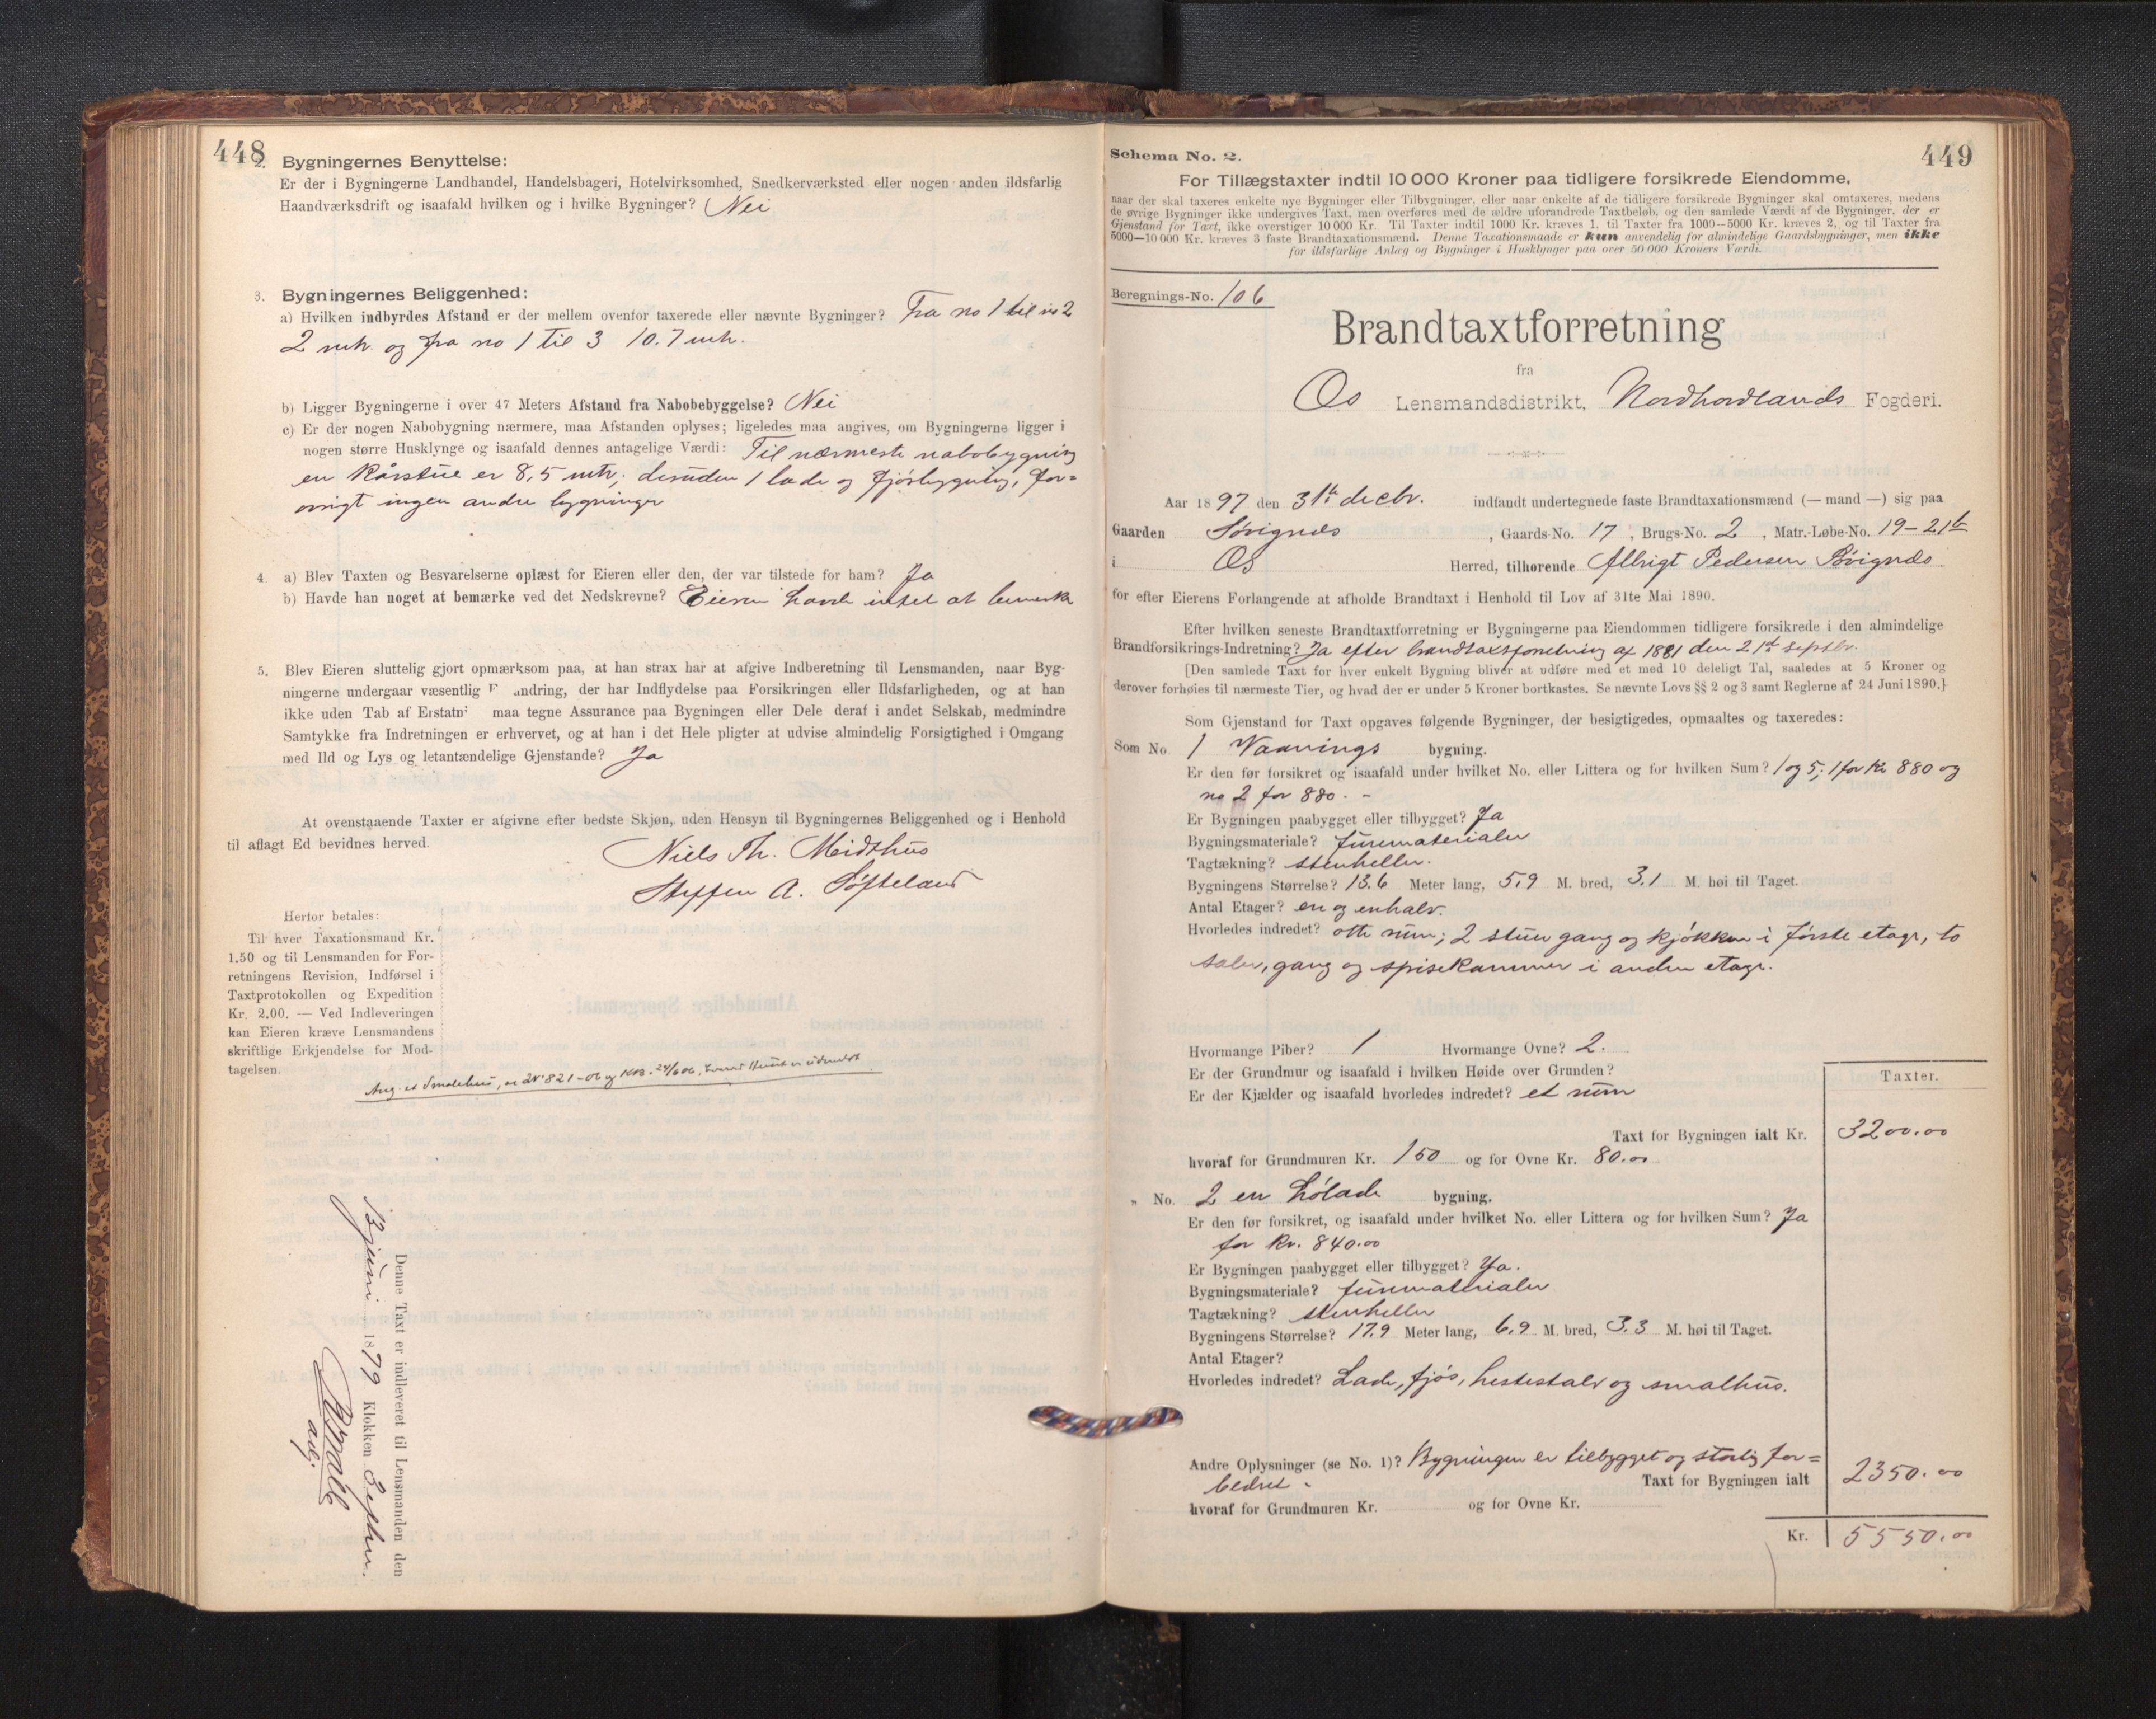 448
2. Bygningernes Benyttelse:
Er der i Bygningerne Landhandel, Handelsbageri, Hotelvirksomhed, Snedkerværksted eller nogen anden ildsfarlig
Haandværksdrift og isaafald hvilken og i hvilke Bygninger? Nei
3. Bygningernes Beliggenhed:
a) Hvilken indbyrdes Afstand er der mellem ovenfor taxerede eller nævnte Bygninger? Fra no 1 til no 2
2 mtr. og fra no 1 til 3 10.7 mtr.
b) Ligger Bygningerne i over 47 Meters Afstand fra Nabobebyggelse? Nei
c) Er der nogen Nabobygning nærmere, maa Afstanden oplyses; ligeledes maa angives, om Bygningerne ligger i
nogen større Husklynge og isaafald dennes antagelige Værdi: Til nærmeste nabobygning
en Kårstue er 8,5 mtr; desuden 1 lade og fjøsbygning, for=
øvrigt ingen andre bygninger
4. a) Blev Taxten og Besvarelserne oplæst for Eieren eller den, der var tilstede for ham? Ja
b) Havde han noget at bemærke ved det Nedskrevne? Eieren havde intet at bemerke
5. Blev Eieren sluttelig gjort opmærksom paa, at han strax har at afgive Indberetning til Lensmanden, naar Byg-
ningerne undergaar væsentlig F andring, der har Indflydelse paa Forsikringen eller Ildsfarligheden, og at han
ikke uden Tab af Erstatni maa tegne Assurance paa Bygningen eller Dele deraf i andet Selskab, medmindre
Samtykke fra Indretningen er erhvervet, og at han i det Hele pligter at udvise almindelig Forsigtighed i Omgang
med Ild og Lys og letantændelige Gjenstande? Ja
At ovenstaaende Taxter er afgivne efter bedste Skjøn, uden Hensyn til Bygningernes Beliggenhed og i Henhold
til aflagt Ed bevidnes herved.
Niels Th. Meidthus
Steffen A. Søfteland
Herfor betales:
Til hver Taxationsmand Kr.
1.50 og til Lensmanden for For-
retningens Revision, Indførsel i
Taxtprotokollen og Expedition
Kr. 2.00. — Ved Indleveringen
kan Eieren kræve Lensmandens
skriftlige Erkjendelse for Mod-
tagelsen.
Denne Taxt er indleveret til Lensmanden den
1879 Klokken 3
449
Schema No. 2.
For Tillægstaxter indtil 10 000 Kroner paa tidligere forsikrede Eiendomme,
naar der skal taxeres enkelte nye Bygninger eller Tilbygninger, eller naar enkelte af de tidligere forsikrede Bygninger skal omtaxeres, medens
de øvrige Bygninger ikke undergives Taxt, men overføres med de ældre uforandrede Taxtbeløb, og den samlede Værdi af de Bygninger, der er
Gjenstand for Taxt, ikke overstiger 10 000 Kr. Til Taxter indtil 1000 Kr. kræves 1, til Taxter fra 1000—5000 Kr. kræves 2, og til Taxter fra
5000—10 000 Kr. kræves 3 faste Brandtaxationsmænd. Denne Taxationsmaade er kun anvendelig for almindelige Gaardsbygninger, men ikke
for ildsfarlige Anlæg og Bygninger i Husklynger paa over 50 000 Kroners Værdi.
Beregnings-No. 106
Brandtaxtforretning
fra
Os Lensmandsdistrikt, Nordhordlands Fogderi.
Aar 1897 den 31te decbr. indfandt undertegnede faste Brandtaxationsmænd (— mand —) sig paa
Gaarden Søvignæs, Gaards-No. 17, Brugs-No. 2, Matr.-Løbe-No. 19-21b
i Os Herred, tilhørende Albrigt Pedersen Søvignæs
for efter Eierens Forlangende at afholde Brandtaxt i Henhold til Lov af 31te Mai 1890.
Efter hvilken seneste Brandtaxtforretning er Bygningerne paa Eiendommen tidligere forsikrede i den almindelige
Brandforsikrings-Indretning? Ja efter brandtaxtforretning af 1881 den 21st septbr.
[Den samlede Taxt for hver enkelt Bygning bliver at udføre med et med 10 deleligt Tal, saaledes at 5 Kroner og
derover forhøies til nærmeste Tier, og hvad der er under 5 Kroner bortkastes. Se nævnte Lovs §§ 2 og 3 samt Reglerne af 24 Juni 1890.]
Som Gjenstand for Taxt opgaves følgende Bygninger, der besigtigedes, opmaaltes og taxeredes:
Som No. 1 Vaanings bygning.
Er den før forsikret og isaafald under hvilket No. eller Littera og for hvilken Sum? 1 og 5; 1 for Kr 880 og
no 2 for 880. -
Er Bygningen paabygget eller tilbygget? Ja
Bygningsmateriale? furematerialer
Tagtækning? stenheller.
Bygningens Størrelse? 13.6 Meter lang, 5,9 M. bred, 3.1 M. høi til Taget.
Antal Etager? en og enhalv.
Hvorledes indredet? otte rum; 2 stuer gang og kjøkken i første etage, to
saler, gang og spisekammer i anden etage.
Hvormange Piber? 1 Hvormange Ovne? 2.
Er der Grundmur og isaafald i hvilken Høide over Grunden?
Er der Kjælder og isaafald hvorledes indredet? et rum
Taxter.
Taxt for Bygningen ialt Kr. 3200.00
hvoraf for Grundmuren Kr. 150 og for Ovne Kr. 80.00
„ No. 2 en Hølade bygning.
Er den før forsikret, og isaafald under hvilket No. eller Littera og for hvilken Sum? Ja
for Kr. 840.00
Er Bygningen paabygget eller tilbygget? Ja.
Bygningsmateriale? furematerialer
Tagtækning? stenheller
Bygningens Størrelse? 17.9 Meter lang, 6,9 M. bred, 3.3 M. høi til Taget.
Antal Etager?
Hvorledes indredet? Lade, fjøs, hestestald og smalhus.
Andre Oplysninger (se No. 1)? Bygningen er tilbygget og storlig for=
bedret.
Taxt for Bygningen ialt 2350.00
hvoraf for Grundmuren Kr. og for Ovne Kr.
Kr. 5550.00